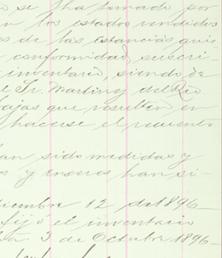 se ha formado por
los estados rendidos
de las estancias que
conformidad suscri-
inventario, siendo de
Sr. Martinez del Rio
bajas que resulten en
hacerse el recuento
han sido medidas y
y enseres han si-
Diciembre 12 de 1896-
fijó el inventario
3 de Octubre 1896-